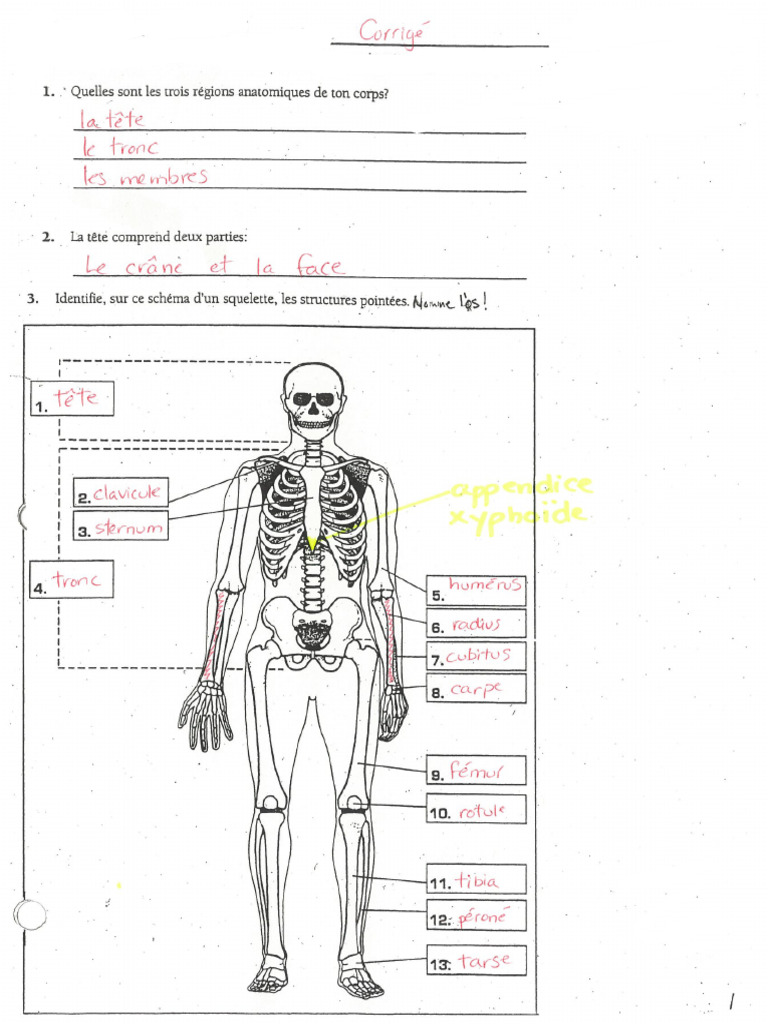 Corrigé
1. Quelles sont les trois régions anatomiques de ton corps?
la tête
le tronc
les membres
2. La tête comprend deux parties:
Le crâne et la face
3. Identifie, sur ce schéma d'un squelette, les structures pointées. Nomme l'os!
1. tête
2. clavicule
3. sternum
appendice
xyphoïde
4. tronc
5. humérus
6. radius
7. cubitus
8. carpe
9. fémur
10. rotule
11. tibia
12. péroné
13. tarse
1